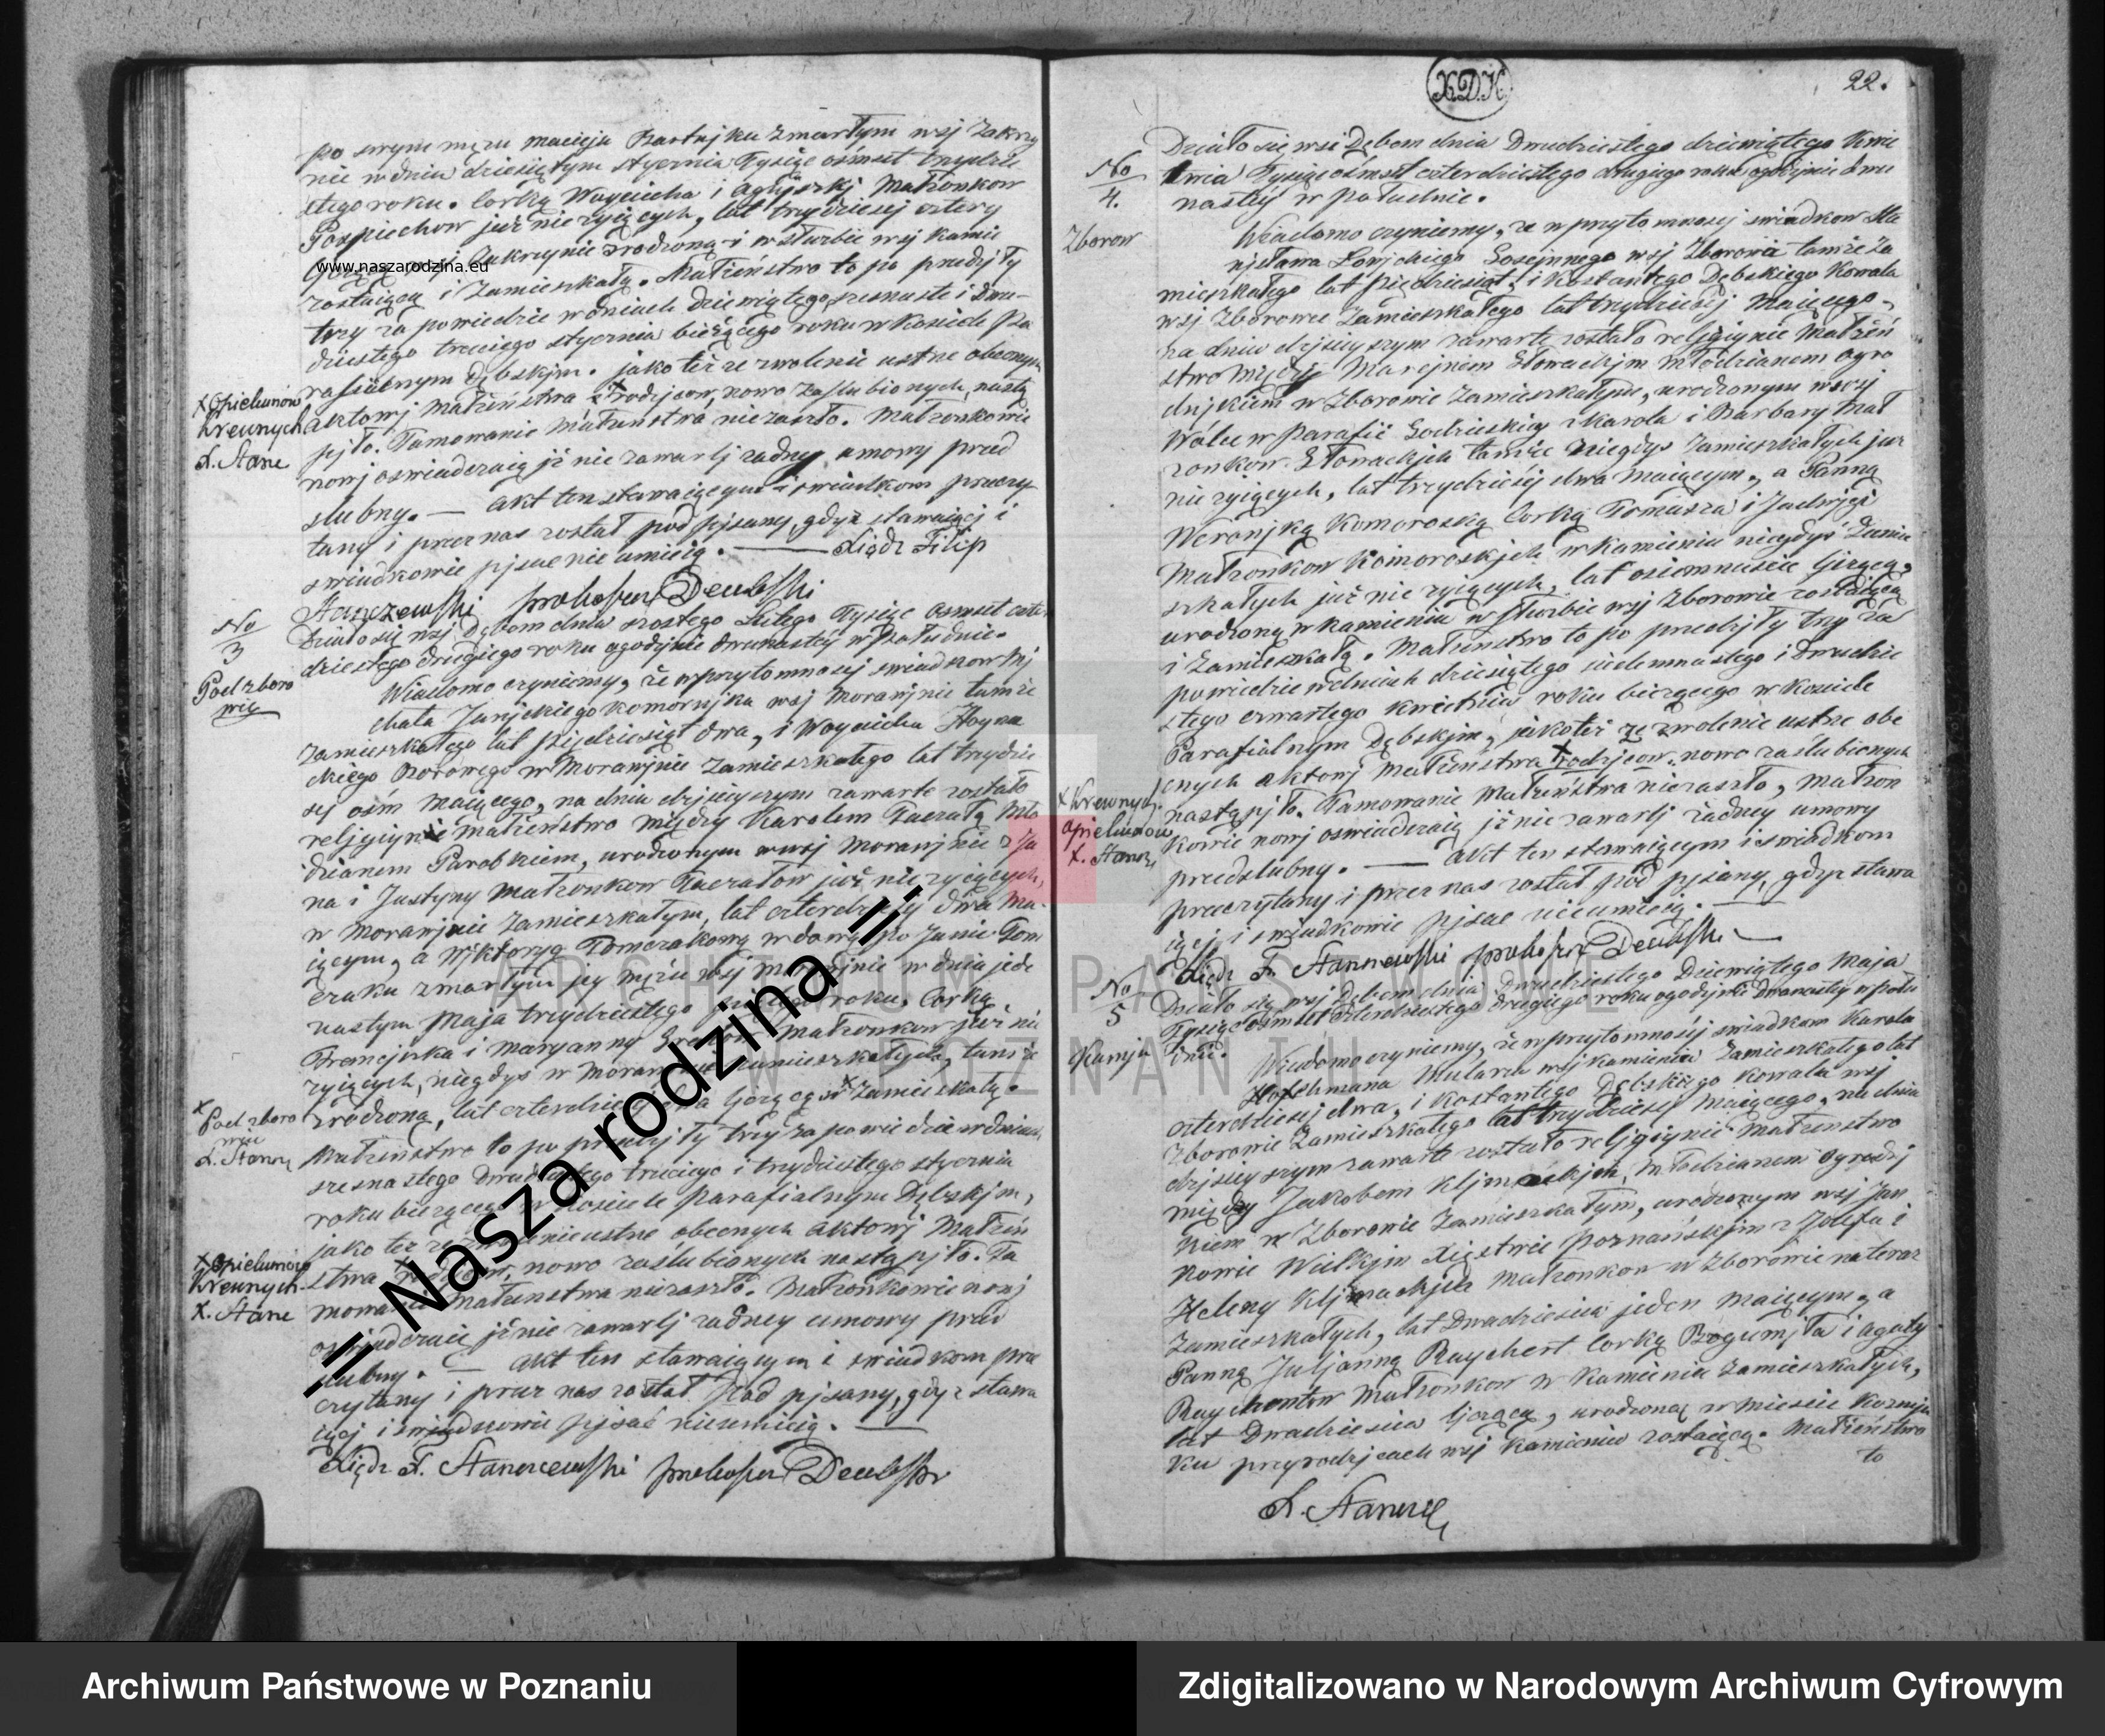 po swym mężu Macieju zmarłym wsi
nie w dniu dziesiątym stycznia Tysiąc ośmset
stego roku. Corką Woyciecha i Matzonkow
już nie żyiących, lat trzydziesci cztery
zrodzoną i w służbie wsi
zostaiącą i zamieszkałą. Matżeństwo to po przedyty
trzy zapowiedzie w dniach dziewiątego, szesnaste i dwu-
dziestego trzeciego stycznia bieżącego roku w Kosciele Pa
rafialnym Dębskjm. jako też ze zwolenie ustne obecnych
aktowj Matżeństwa rodzjcow nowo zaslubionych, nastą
pjło. Tamowanie Matżenstwa nie zaszło. Matzonkowie
nowj oswiadczaią jż nie zawarlj żadney umowy przed
slubny. — Akt ten stawaiącym i swiadkom przeczy
tany i przez nas został podpjsany, gdyż stawaiącj i
swiadkowie pjsac nie umieią. — Xiądz Filip
Stanczewski proboszcz Dembski
X Opiekunow
krewnych
X. Stanc
No
3
Podzboro
wie
Działo się wsj Dębom dnia szostego Lutego Tysiąc osmset czter
dziestego drugiego roku o godzjnie dwunastey w Południe.
Wiadomo czyniemy, że w przytomnoscj swiadkow Mj
chała komornjka wsj Morawjnie tamże
zamieszkałego lat pjędziesiąt dwa, i Woyciecha
ckiego Borowego w Morawjnie zamieszkałego lat trzydzie
scj osm maiącego, na dniu dzjsieyszym zawarte zostało
religjyne matżeństwo między Karolem Kaczałą Mło
dzianem Parobkiem, urodzonym w wsj Morawjnie z Ja
na i Justyny Matzonkow Kaczałow już nie żyiących,
w Morawjnie zamieszkałym, lat czterdziescj dwa ma
iącym, a Wjktoryą Tomczakową wdową po Janie Tom
czaku zmarłym jey mężu wsj Morawjnie w dniu jede
nastym Maja trzydziestego roku, Corką
Francjszka i Maryanny Matzonkow już nie
żyiących, niegdys w zamieszkałych, tamże
zrodzoną, lat czterdziescj ljczącą i zamieszkałą.
Matżeństwo to po przedzjty trzy zapowiedzie w dniach
szesnastego dwudziestego trzeciego i trzydziestego stycznia
roku bierzącego w Kosciele Parafialnym Dębskjm,
jako też ustne obecnych aktowj Matżeń
stwa nowo zaślubionych nastąpjło. Ta
mowanie Matżenstwa nie zaszło. Matzonkowie nowj
jż nie zawarlj żadney umowy przed
slubny. — Akt ten stawaiącym i swiadkom prze
czytany i przez nas został podpjsany, gdyż stawa
iącj i swiadkowie pjsać nieumieią. —
Xiądz F. Stanczewski proboszcz Dembski
X
Podzboro
wie
X. Stancz
X Opiekunow
krewnych
X. Stanc
XDK
22.
No
4.
Zborow
Działo się wsi Dębom dnia Dwudziestego dziewiątego Kwie
tnia Tysiąc osmset czterdziestego drugiego roku o godzjnie dwu
nastey w południe.
Wiadomo czyniemy, że w przytomnoscj swiadkow Sta
njsława Goscjnnego wsj Zborowie tamże za
mieszkałego lat pięcdziesiąt, i Kostantego Dębskiego Kowala
wsj Zborowie zamieszkałego lat trzydziescj maiącego,
na dniu dzjsieyszym zawarte zostało religjyne Matżeń
stwo między Marcjnem Słowackjm Młodzianem ogro
dnjkiem w Zborowie zamieszkałym, urodzonym w wsj
w Parafii z Karola i Barbary Mat
zonkow Słowackjch tamże niegdys zamieszkałych już
nie żyiących, lat trzydziescj dwa maiącym, a Panną
Weronjką Komoroską Corką Tomasza i Jadwjgi
Matzonkow Komoroskjch w Kamieniu niegdys zamie
szkałych już nie żyiących, lat osiemnascie ljczącą,
urodzoną w Kamieniu w służbie wsj Zborowie zostaiącą
i zamieszkałą. Matżenstwo to po przedzjty trzy za
powiedzie w dniach dziesiątego siedemnastego i dwudzie
stego czwartego kwietnia roku bierzącego w Kosciele
Parafialnym Dębskjm, jako też ze zwolenie ustne obe
cnych aktowj Matżeństwa rodzjcow nowo zaślubionych
nastąpjło. Tamowanie Matżeństwa nie zaszło, Matzon
kowie nowj oswiadczaią jż nie zawarlj żadney umowy
przedslubny. — Akt ten stawaiącym i swiadkom
przeczytany i przez nas został podpjsany, gdyż stawa
iącj i swiadkowie pjsac nieumieią. —
Xiądz F. Stanczewski proboszcz Dembski —
X krewnych
opiekunow
X. Stancz
No
5
Kamjń
Działo się wsj Dębom dnia Dwudziestego Dziewiątego Maja
Tysiąc osmset czterdziestego drugiego roku o godzjnie dwunastey w połu
dnie. Wiadomo czyniemy, że w przytomnoscj swiadkow Karola
Mularza wsj Kamieniu zamieszkałego lat
czterdziescj dwa, i Kostantego Dębskiego Kowala wsj
Zborowie zamieszkałego lat trzydziescj maiącego, na dniu
dzjsieyszym zawarte zostało religjyne Matżenstwo
między Jakobem Młodzianem ogrodnj
kiem w Zborowie zamieszkałym, urodzonym wsj Jan
kowie Wielkjm Xięstwie Poznańskjm z Jozefa i
Heleny Matzonkow w Zborowie na teraz
zamieszkałych, lat dwadziescia jeden maiącym, a
Panną Juljanną Raychert Corką Bogumjła i Agaty
Raychertow Matzonkow w Kamieniu zamieszkałych,
lat Dwadziescia ljczącą, urodzoną w miescie Kozmjn
ku przy rodzjcach wsj Kamieniu zostaiącą. Matżeństwo
to
X. Stancz
www.naszarodzina.eu
= Nasza rodzina =
ARCHIWUM PAŃSTWOWE
W POZNANIU
Archiwum Państwowe w Poznaniu
Zdigitalizowano w Narodowym Archiwum Cyfrowym